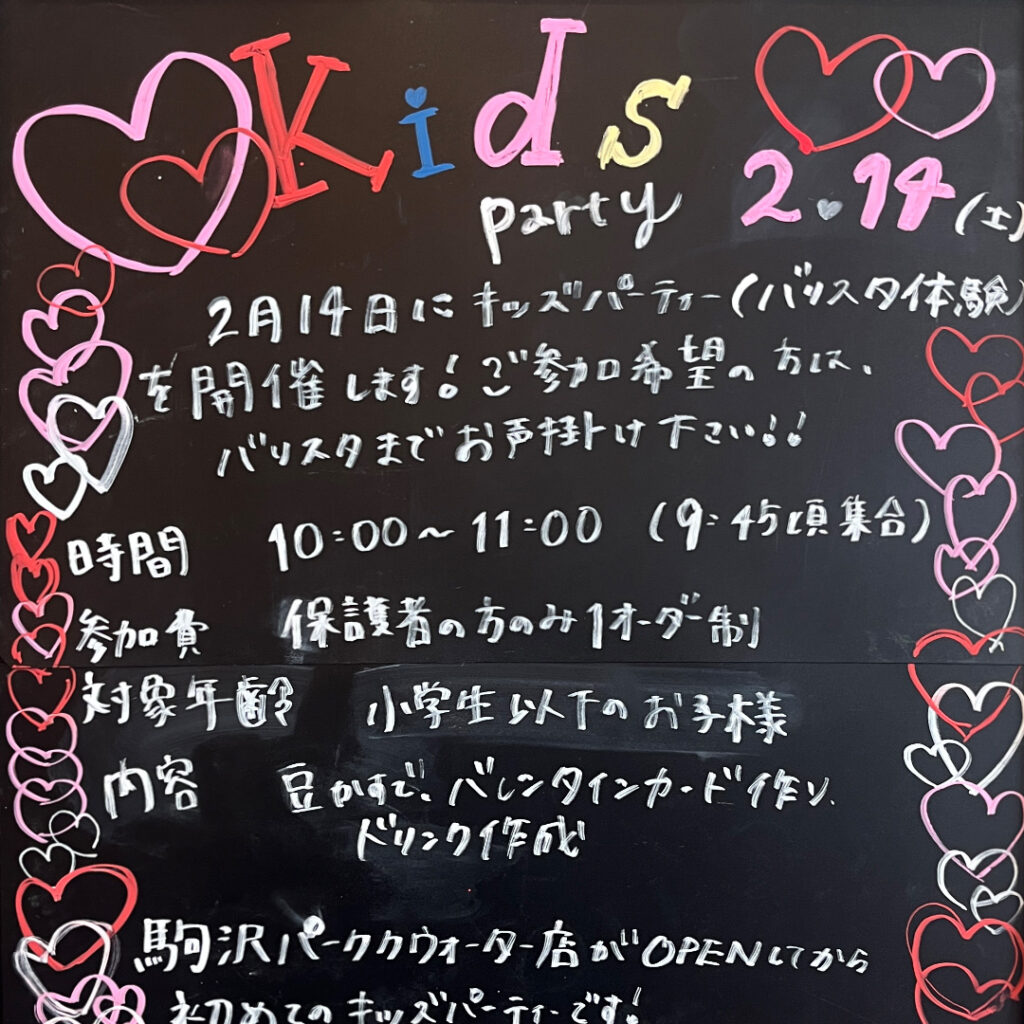 Kids
party 2.14(土)
2月14日にキッズパーティー(バリスタ体験)
を開催します!ご参加希望の方は、
バリスタまでお声掛け下さい!!
時間 10:00~11:00 (9:45頃集合)
参加費 保護者の方のみ1オーダー制
対象年齢 小学生以下のお子様
内容 豆かすで、バレンタインカード作り、
ドリンク作成
駒沢パーククウォーター店がOPENしてから
初めてのキッズパーティーです!